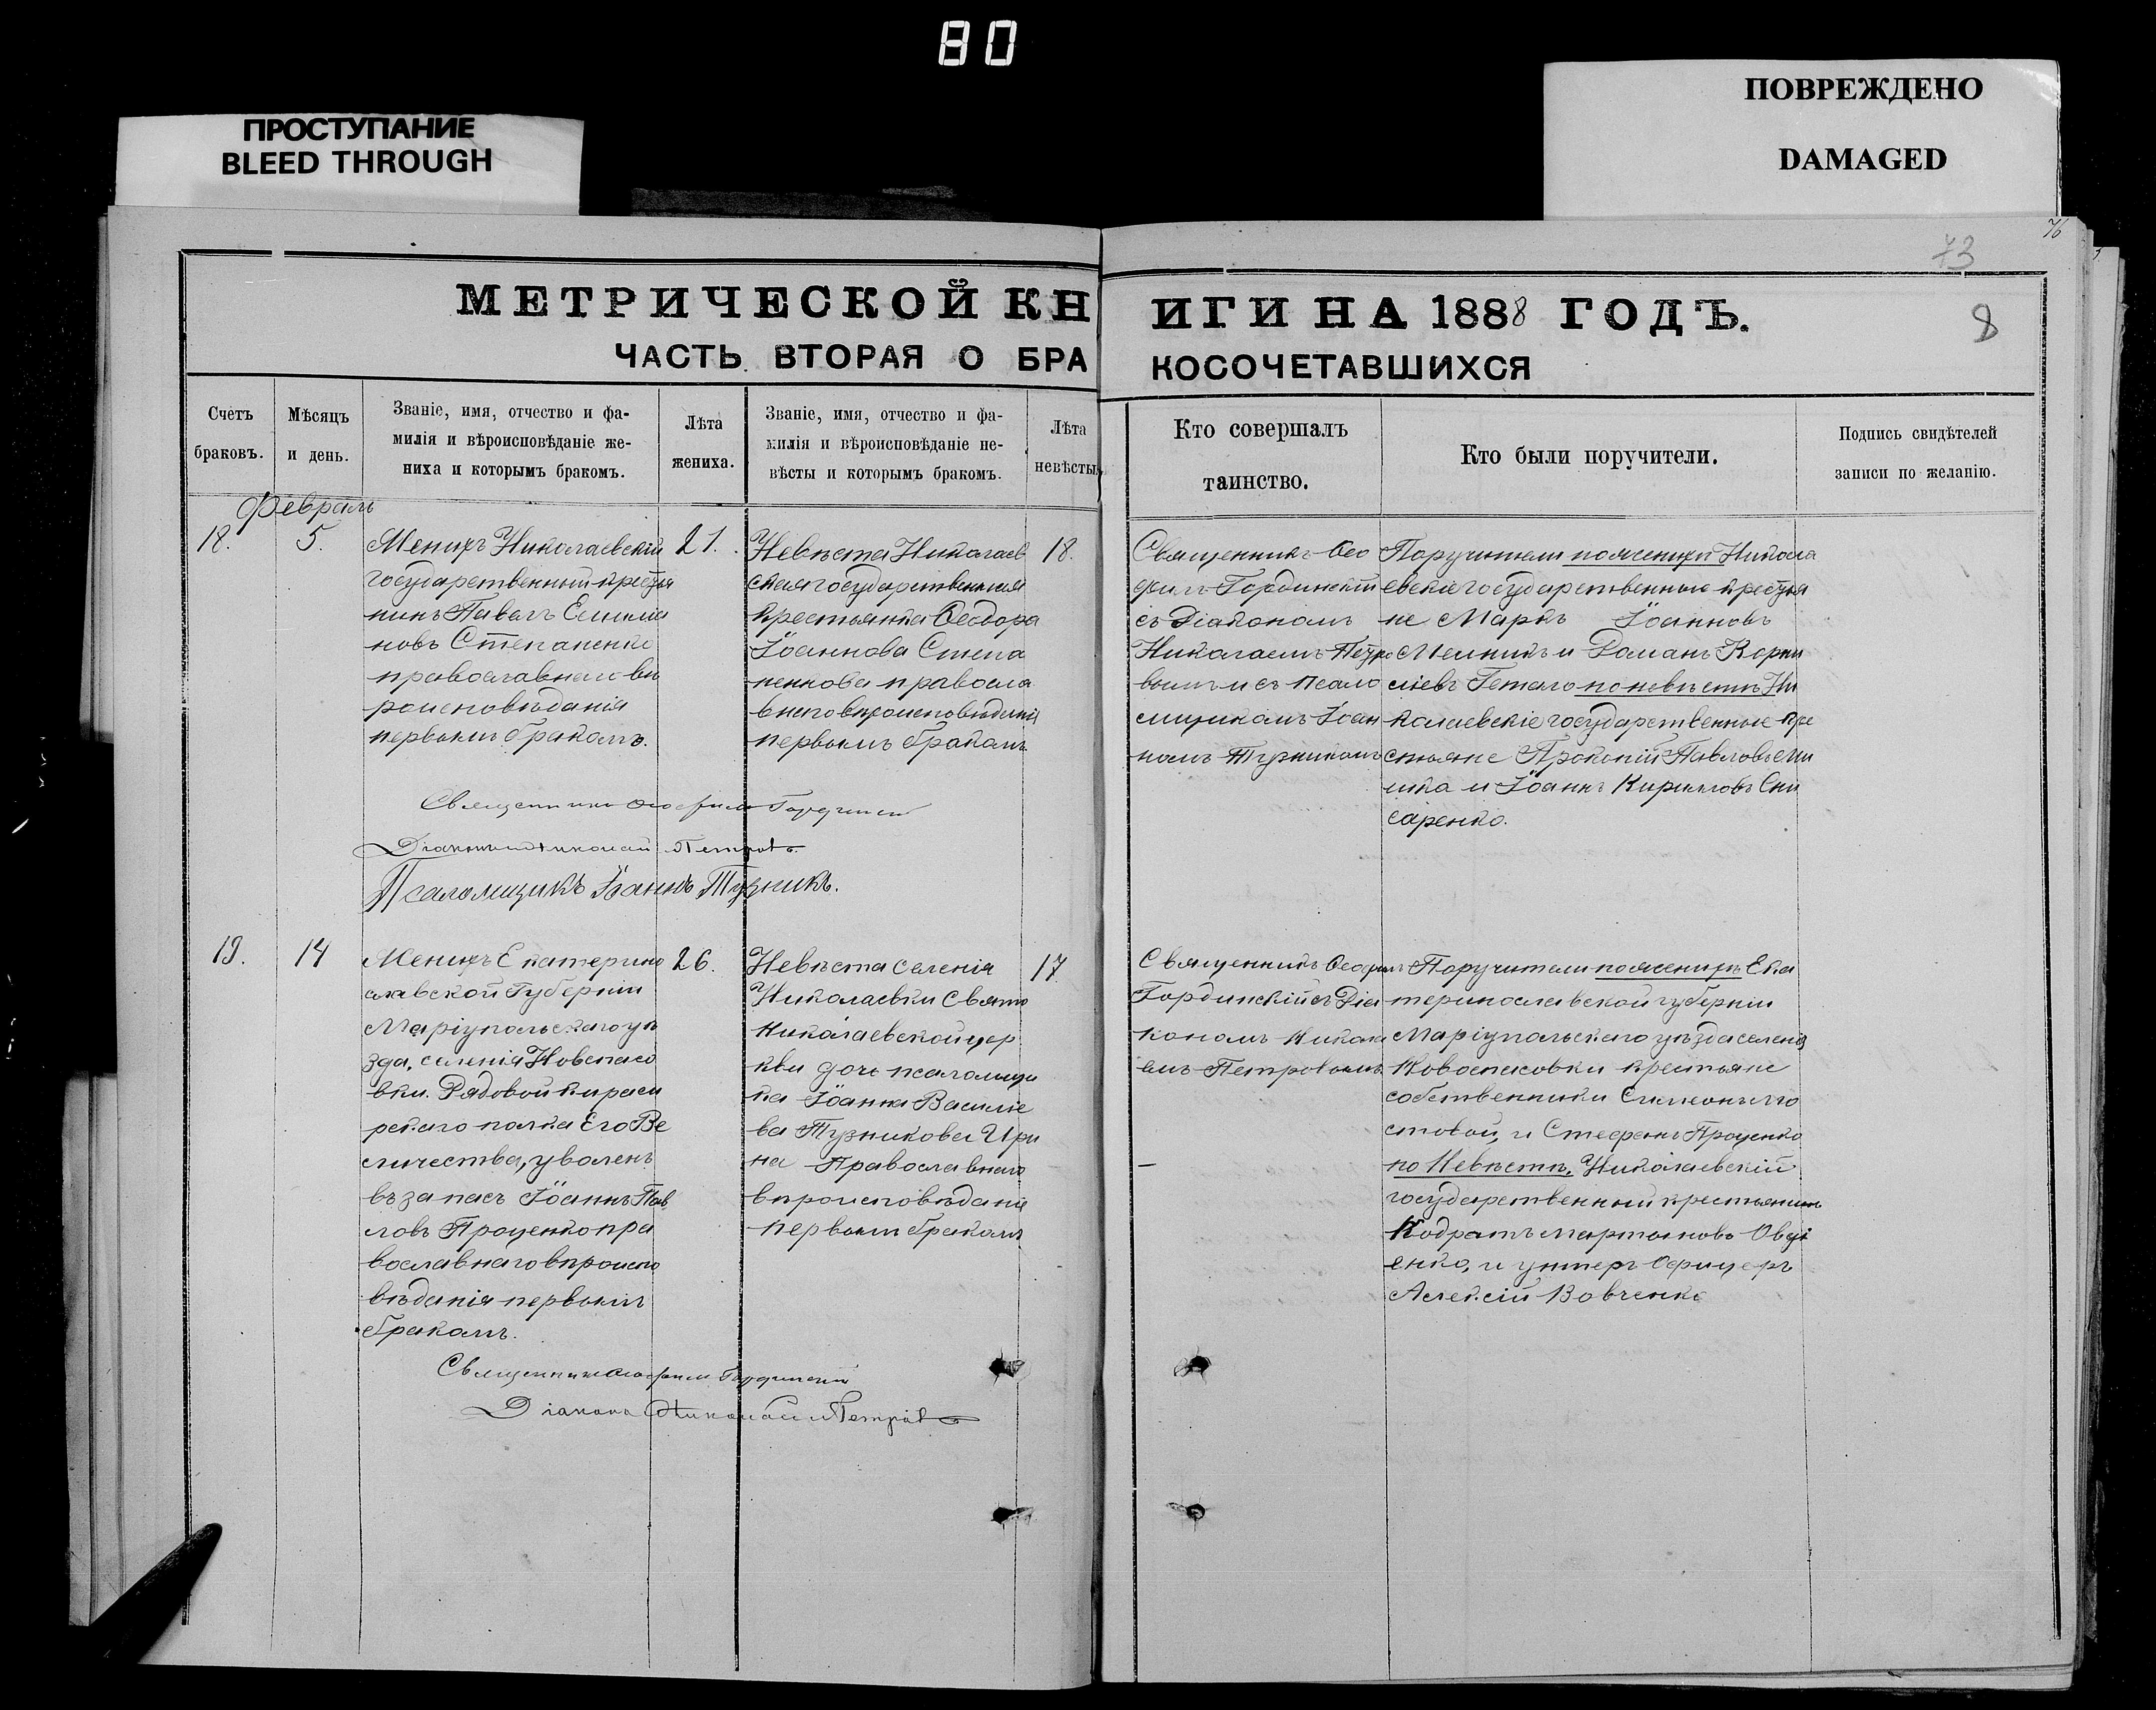 80
ПРОСТУПАНИЕ
BLEED THROUGH
ПОВРЕЖДЕНО
DAMAGED
76
73
8
МЕТРИЧЕСКОЙ КН
ИГИ НА 1888 ГОДЪ.
ЧАСТЬ ВТОРАЯ О БРА
КОСОЧЕТАВШИХСЯ
Счетъ
браковъ.
Мѣсяцъ
и день.
Званіе, имя, отчество и фа-
милія и вѣроисповѣданіе же-
ниха и которымъ бракомъ.
Лѣта
жениха.
Званіе, имя, отчество и фа-
милія и вѣроисповѣданіе не-
вѣсты и которымъ бракомъ.
Лѣта
невѣсты.
Кто совершалъ
таинство.
Кто были поручители.
Подпись свидѣтелей
записи по желанію.
Февраль
18.
5.
Женихъ Николаевскій
государственный крестья
нинъ Павелъ Емилiа
новъ Степаненко
православнаго вѣ
роисповѣданія
первымъ бракомъ.
21.
Невѣста Николаев
ская государственная
крестьянка Ѳеодора
Іоаннова Степа
ненкова правосла
внаго вѣроисповѣданія
первымъ бракомъ
18.
Священникъ Ѳео
филъ Гординскій
съ Діакономъ
Николаемъ Петро
вымъ и съ псало
мщикомъ Іоан
номъ Тузникомъ
Поручители по женихѣ Никола
евскіе государственные крестья
не Маркъ Іоанновъ
Мельникъ и Романъ Корни
ліевъ Гетало по невѣстѣ Ни
колаевскіе государственные кре
стьяне Прокопій Павловъ Ми
шка и Іоаннъ Кирилловъ Сли
саренко.
Священникъ Ѳеофилъ Гординскій
Діаконъ Николай Петровъ.
Псаломщикъ Іоаннъ Тузникъ.
19.
14
Женихъ Екатерино
славской Губерніи
Маріупольскаго уѣ
зда, селенія Новспасо
вки. Рядовой кираси
рскаго полка Его Ве
личества, уволенъ
въ запасъ Іоаннъ Пав
ловъ Проценко пра
вославнаго вѣроиспо
вѣданія первымъ
бракомъ.
26.
Невѣста селенія
Николаевки Свято
Николаевской цер
кви дочь псаломщи
ка Іоанна Василіе
ва Тузникова Ири
на Православнаго
вѣроисповѣданія
первымъ бракомъ
17
Священникъ Ѳеофилъ
Гординскій съ Діа
кономъ Никола
емъ Петровымъ
–
Поручители по женихѣ Ека
теринославской губерніи
Маріупольскаго уѣзда селенія
Новоспасовки крестьяне
собственники Симеонъ Мо
стовой, и Стефанъ Проценко
по Невѣстѣ, Николаевскій
государственный крестьянинъ
Кодратъ Мартыновъ Овді
енко, и унтеръ офицеръ
Алексій Вовченко
Священникъ Ѳеофилъ Гординскій
Діаконъ Николай Петровъ